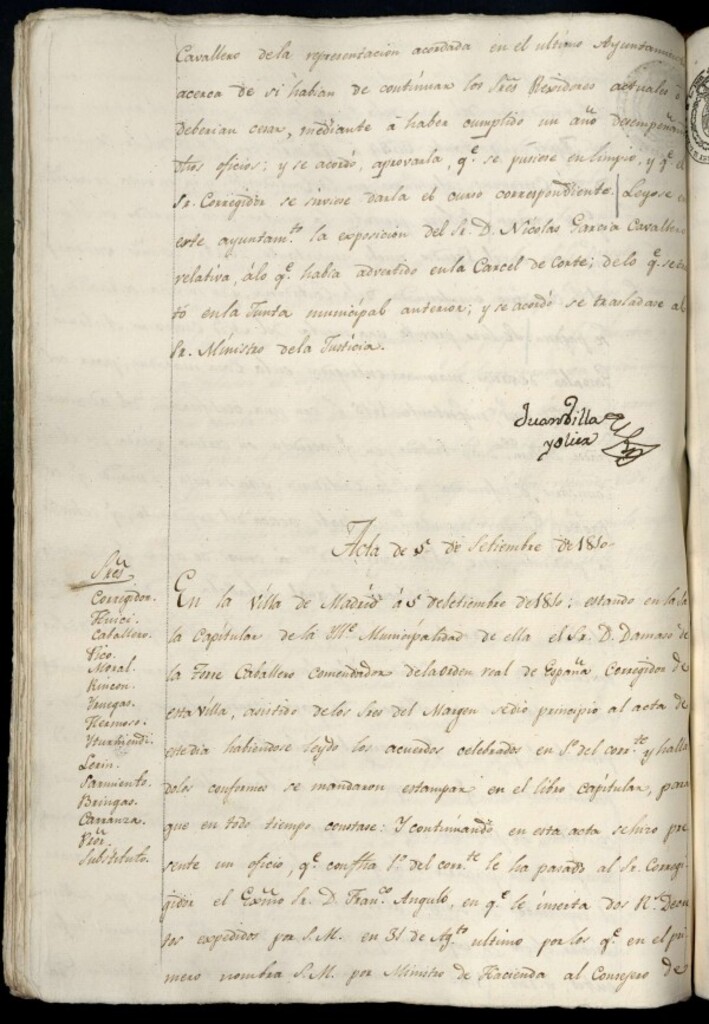 Cavallero de la representacion acordada en el ultimo Ayuntamien
acerca de si habian de continuar los Sres Rexidores actuales ó
deberian cesar, mediante á haber cumplido un año desempeñan
dhos oficios: y se acordó, aprovarla, qe. se pusiese en limpio, y qe. el
Sr. Corregidor se sirviese darla el curso correspondiente. | Leyose en
este ayuntamto. la exposicion del Sr. D. Nicolas Garcia Cavallero
relativa, á lo qe. habia advertido en la Carcel de Corte; de lo qe. se tra
tó en la Junta municipal anterior; y se acordó se trasladase al
Sr. Ministro de la Justicia.
Juan Villa
y Olier
Acta de 5 de Setiembre de 1810
Sres
Corregidor.
Huici.
Caballero.
Pico.
Moral.
Rincon.
Yruegas.
Hermoso.
Yturmendi.
Lerin.
Sarmiento.
Bringas.
Carranza.
Pror.
Substituto.
En la Villa de Madrid á 5 de Setiembre de 1810; estando en la Sa
la Capitular de la Me. Municipalidad de ella el Sr. D. Damaso de
la Torre Caballero comendador de la orden real de España, Corregidor de
esta Villa, asistido de los Sres del Margen se dio principio al acta de
este dia habiendose leydo los acuerdos celebrados en 1º del corrte. y halla
dolos conformes se mandaron estampar en el libro capitular, para
que en todo tiempo constase: Y continuando en esta acta se hizo pre
sente un oficio, qe. con fha 1º del corrte. le ha pasado al Sr. Corregi
gidor el Exmo Sr. D. Franco. Angulo, en qe. le inserta dos Rs. Decre
tos expedidos por S.M. en 31 de Agto. ultimo por los qe. en el pri
mero nombra S.M. por Ministro de Hacienda al Consejero de